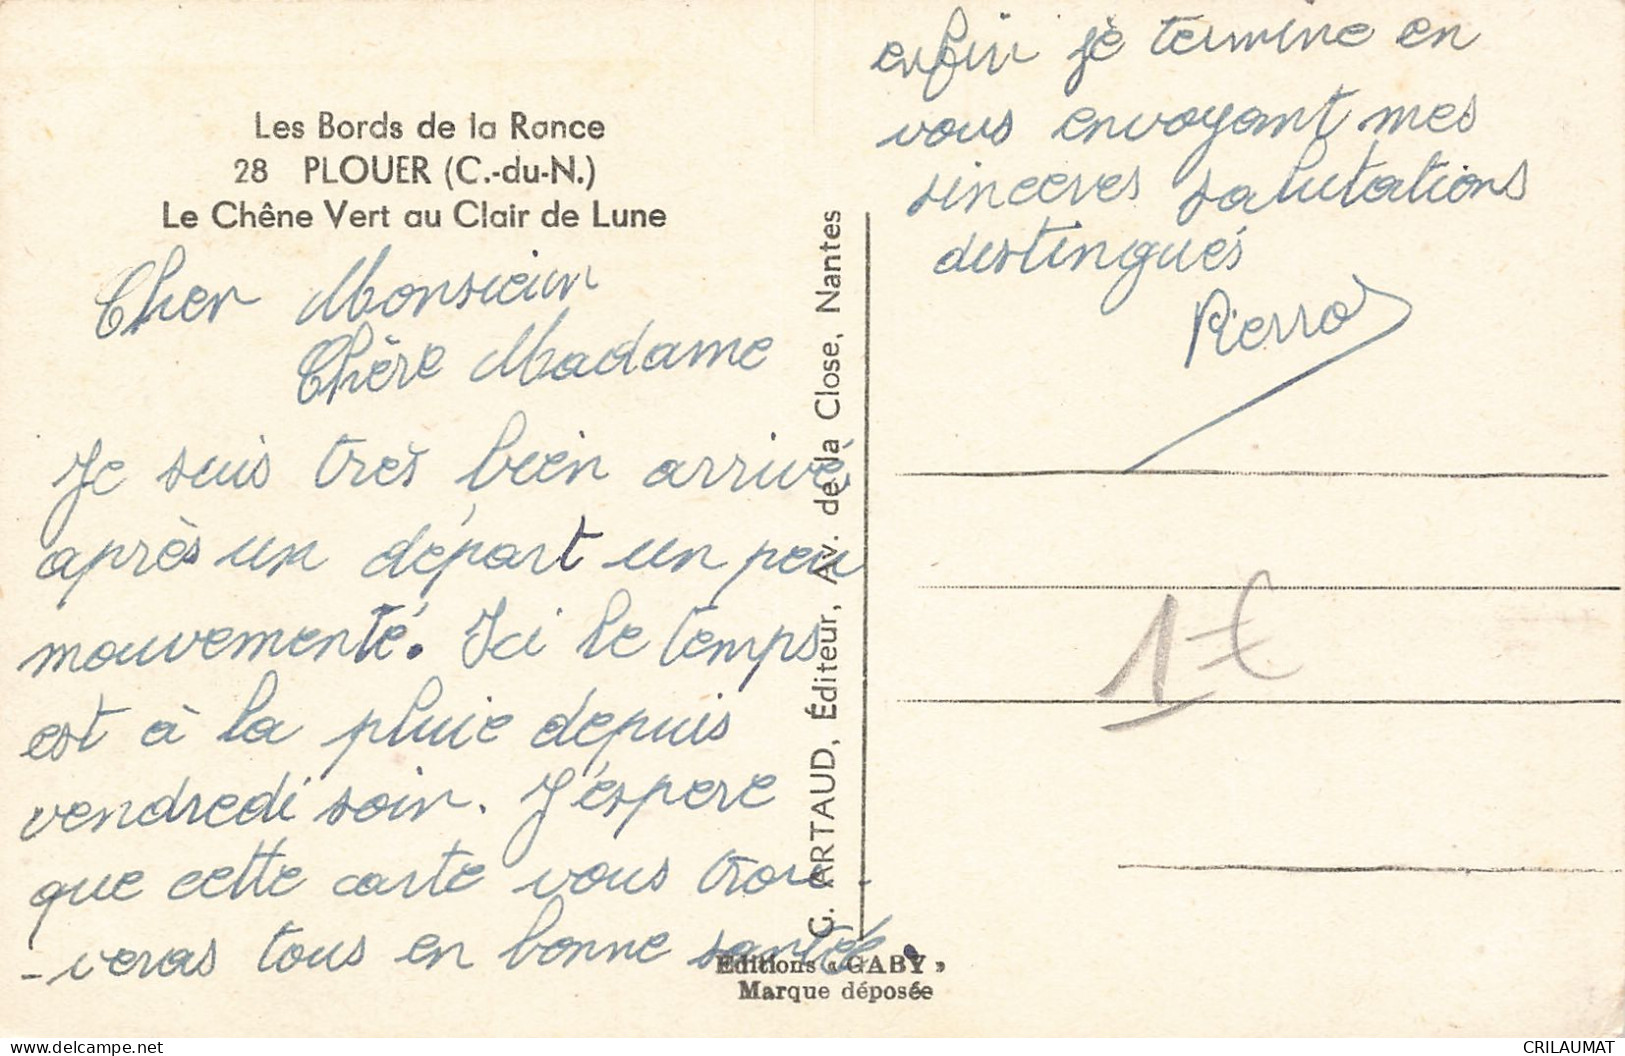 Les Bords de la Rance
28 PLOUER (C.-du-N.)
Le Chêne Vert au Clair de Lune
Cher Monsieur
Chère Madame
Je suis très bien arrivé
après un départ un peu
mouvementé. Ici le temps
est à la pluie depuis
vendredi soir. J'éspere
que cette carte vous trou-
-veras tous en bonne santée.
G. ARTAUD, Éditeur, Av. de la Close, Nantes
Editions « GABY »
Marque déposée
enfin je termine en
vous envoyant mes
sinceres salutations
distingués
Pierrot
1€
CRILAUMAT
delcampe.net